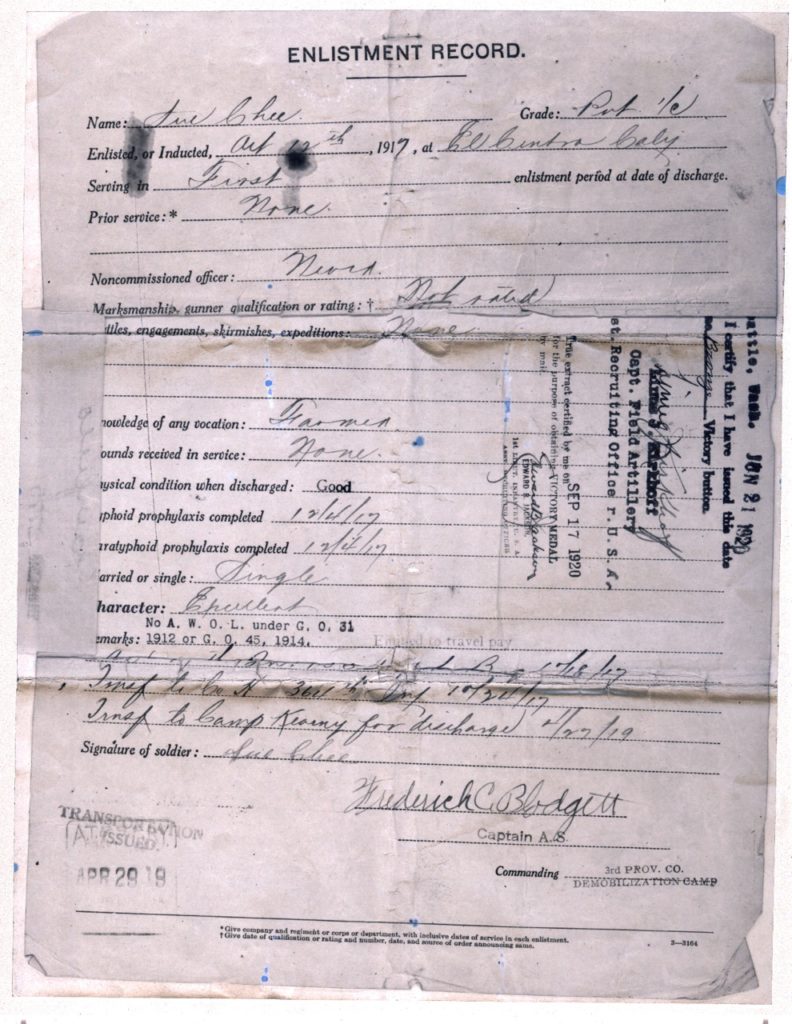 ENLISTMENT RECORD.
Name: Sue Chee. Grade: Pvt 1/c
Enlisted, or Inducted, 12th, 1917, at El Centro
Serving in First enlistment period at date of discharge.
Prior service:* None.
Noncommissioned officer: Never.
Marksmanship, gunner qualification or rating: † Not rated
ttles, engagements, skirmishes, expeditions: None
nowledge of any vocation: Farmer.
ounds received in service: None.
ysical condition when discharged: Good
yphoid prophylaxis completed 12/4/17
ratyphoid prophylaxis completed 12/4/17
arried or single: Single
haracter: Excellent
No A. W. O. L. under G. O. 31
emarks: 1912 or G. O. 45, 1914. Entitled to travel pay
Trnsf to Co H 364th Inf 10/24/17
Trnsf to Camp Kearny for discharge 4/27/19
Signature of soldier: Sue Chee
Frederick C. Blodgett
Captain A.S.
Commanding 3rd PROV. CO.
DEMOBILIZATION CAMP
TRANSPORTATION
ISSUED.
APR 29 19
*Give company and regiment or corps or department, with inclusive dates of service in each enlistment.
†Give date of qualification or rating and number, date, and source of order announcing same.
3—3164
attle, Wash. JUN 21 1920
I certify that I have issued this date
Bronze Victory button.
Capt. Field Artillery
et. Recruiting Office r. U. S. A.
True extract certified by me on SEP 17 1920
for the purpose of obtaining VICTORY MEDAL
by mail